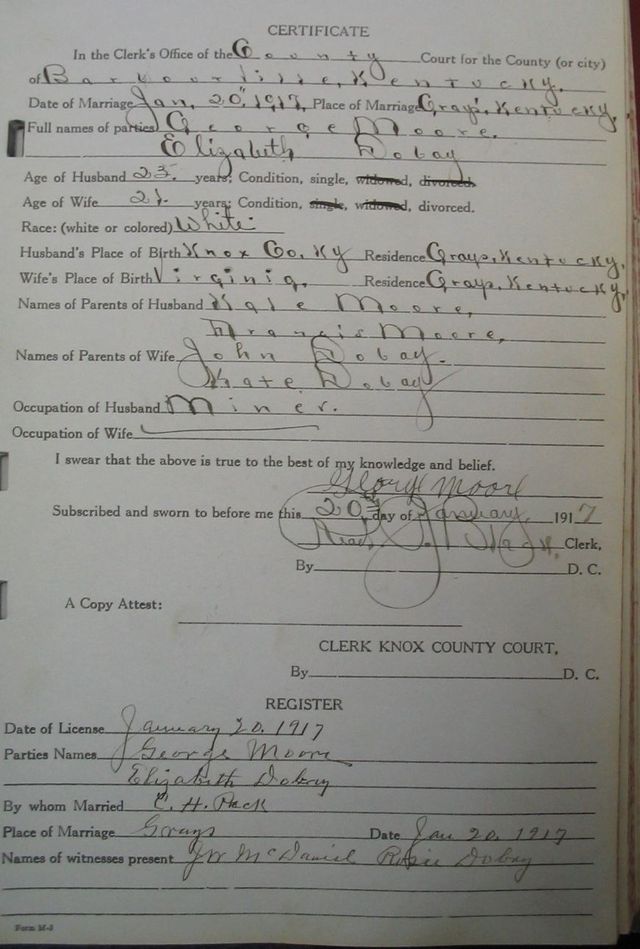 CERTIFICATE
In the Clerk's Office of the County Court for the County (or city)
of Barbourville, Kentucky.
Date of Marriage Jan, 20", 1917, Place of Marriage Grays, Kentucky,
Full names of parties George Moore,
Elizabeth Dobay
Age of Husband 23. years; Condition, single, widowed, divorced.
Age of Wife 21. years; Condition, single, widowed, divorced.
Race: (white or colored) White
Husband's Place of Birth Knox Co, Ky Residence Grays, Kentucky,
Wife's Place of Birth Virginia, Residence Grays, Kentucky,
Names of Parents of Husband Moore,
Francis Moore,
Names of Parents of Wife John Dobay.
Kate Dobay
Occupation of Husband Miner.
Occupation of Wife
I swear that the above is true to the best of my knowledge and belief.
George Moore
Subscribed and sworn to before me this 20 day of January, 1917
Read Clerk,
By D. C.
A Copy Attest:
CLERK KNOX COUNTY COURT,
By D. C.
REGISTER
Date of License January 20. 1917
Parties Names George Moore
Elizabeth Dobay
By whom Married C. H. Pack
Place of Marriage Grays Date Jan 20, 1917
Names of witnesses present JW McDaniel Rosie Dobay
Form M-3